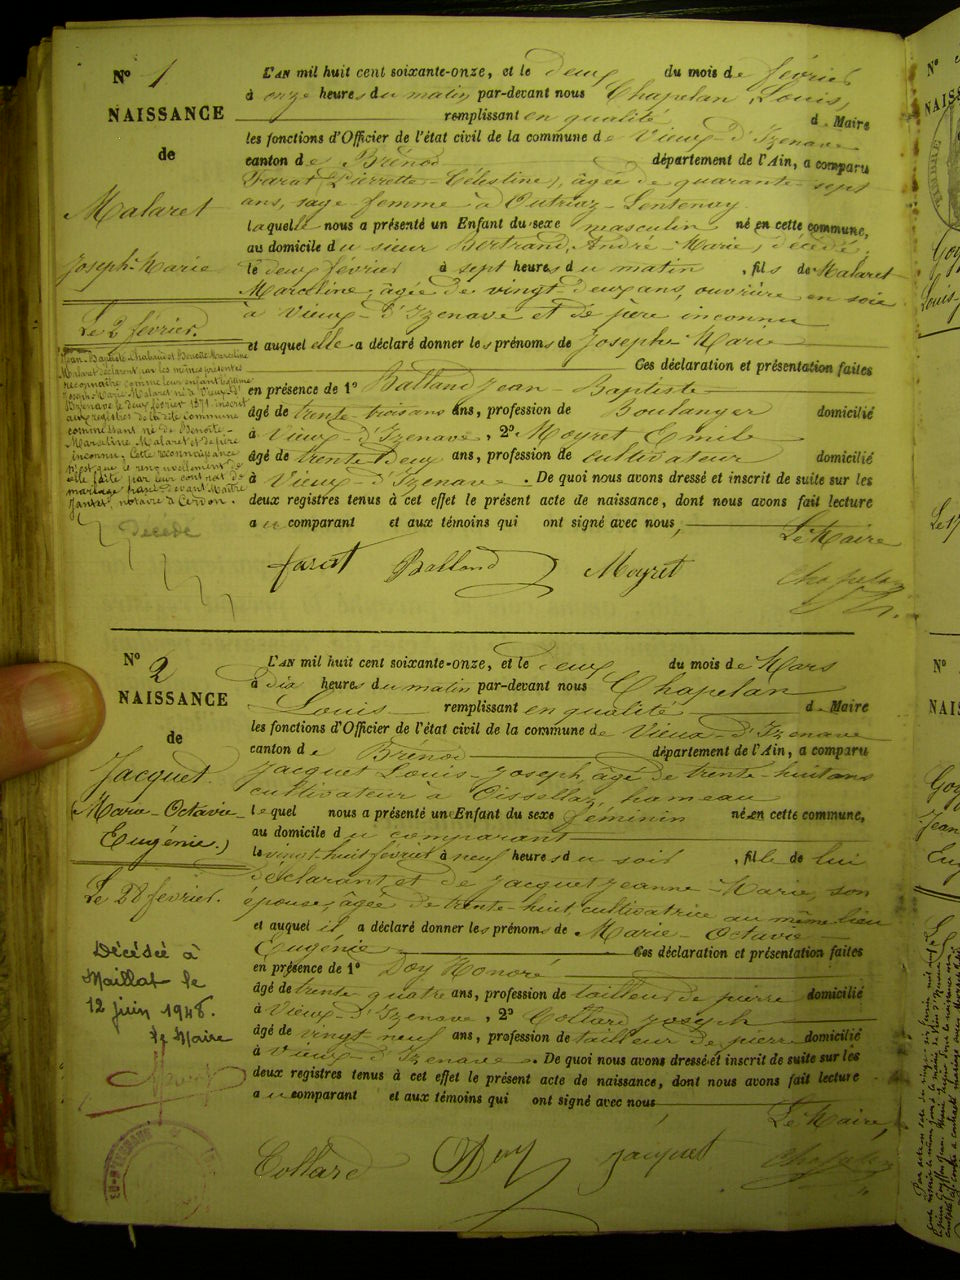 N° 1
NAISSANCE
de
Malaret
Joseph-Marie
Le 2 février.
Jean-Baptiste Chabaud et Benoîte Marceline
Malaret déclarent par les mêmes présentes
reconnaître comme leur enfant légitime
Joseph Marie Malaret né à Vieux-d'
Izenave le deux février 1871 inscrit
aux registres de la dite commune
comme étant né de Benoîte-
Marceline Malaret et de père
inconnu. Cette reconnaissance
n'est que le renouvellement de
celle faite par leur contrat de
mariage passé devant Maître
notaire à Cerdon.
Décédé
L'AN mil huit cent soixante-onze, et le deux du mois de février
à onze heures du matin par-devant nous Chapelan, Louis,
remplissant en qualité de Maire
les fonctions d'Officier de l'état civil de la commune de Vieux-d'Izenave
canton de Brénod département de l'Ain, a comparu
Farat (Pierrette-Célestine), âgée de quarante-sept
ans, sage femme à Outriaz-Lentenay
laquelle nous a présenté un Enfant du sexe masculin né en cette commune,
au domicile du sieur Bertrand, André-Marie, décédé,
le deux février à sept heures du matin, fils de Malaret
Marceline, âgée de vingt-deux ans, ouvrière en soie
à Vieux-d'Izenave et de père inconnu
et auquel elle a déclaré donner les prénoms de Joseph-Marie
Ces déclaration et présentation faites
en présence de 1° Balland Jean-Baptiste
âgé de trente-trois ans ans, profession de Boulanger domicilié
à Vieux-d'Izenave, 2° Moyret Emile
âgé de trente Deux ans, profession de cultivateur domicilié
à Vieux-d'Izenave. De quoi nous avons dressé et inscrit de suite sur les
deux registres tenus à cet effet le présent acte de naissance, dont nous avons fait lecture
au comparant et aux témoins qui ont signé avec nous,
Le Maire
Farat Balland Moyret Chapelan
N° 2
NAISSANCE
de
Jacquet
Marie-Octavie-
Eugénie.)
Le 28 février.
Décédée à
Maillat le
12 juin 1948.
Le Maire
L'AN mil huit cent soixante-onze, et le deux du mois de Mars
à dix heures du matin par-devant nous Chapelan
Louis remplissant en qualité de Maire
les fonctions d'Officier de l'état civil de la commune de Vieux-d'Izenave
canton de Brénod département de l'Ain, a comparu
Jacquet Louis-Joseph, âgé de trente-huit ans
cultivateur à Oisellaz, hameau
lequel nous a présenté un Enfant du sexe féminin né en cette commune,
au domicile du comparant
le vingt-huit février à neuf heures du soir, fille de lui
déclarant et de Jacquet Jeanne-Marie, son
épouse, âgée de trente-huit, cultivatrice au même lieu
et auquel il a déclaré donner les prénoms de Marie-Octavie
Eugénie Ces déclaration et présentation faites
en présence de 1° Doy Honoré
âgé de trente quatre ans, profession de tailleur de pierre domicilié
à Vieux-d'Izenave, 2° Collard Joseph
âgé de vingt-neuf ans, profession de tailleur de pierre domicilié
à Vieux d'Izenave. De quoi nous avons dressé et inscrit de suite sur les
deux registres tenus à cet effet le présent acte de naissance, dont nous avons fait lecture
au comparant et aux témoins qui ont signé avec nous
Le Maire,
Collard Doy Jacquet Chapelan